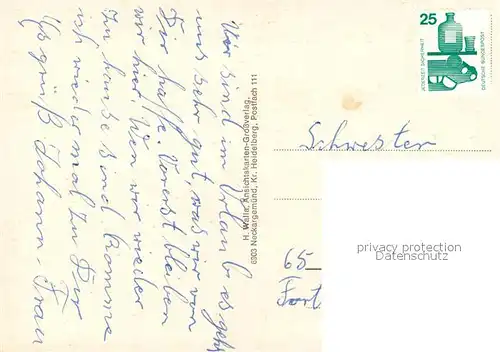 Wir sind im Urlaub es geht
uns sehr gut, was wir von
Dir hoffe. Vorerst bleiben
wir hier. Wen wir wieder
zu hause sind. komme
ich wieder mal zu Dir
Es grüß Johann - Frau
H. Walla, Ansichtskarten-Großverlag,
6903 Neckargemünd, Kr. Heidelberg, Postfach 111
25
JEDERZEIT SICHERHEIT
DEUTSCHE BUNDESPOST
Schwester
privacy protection
Datenschutz
65
Fort